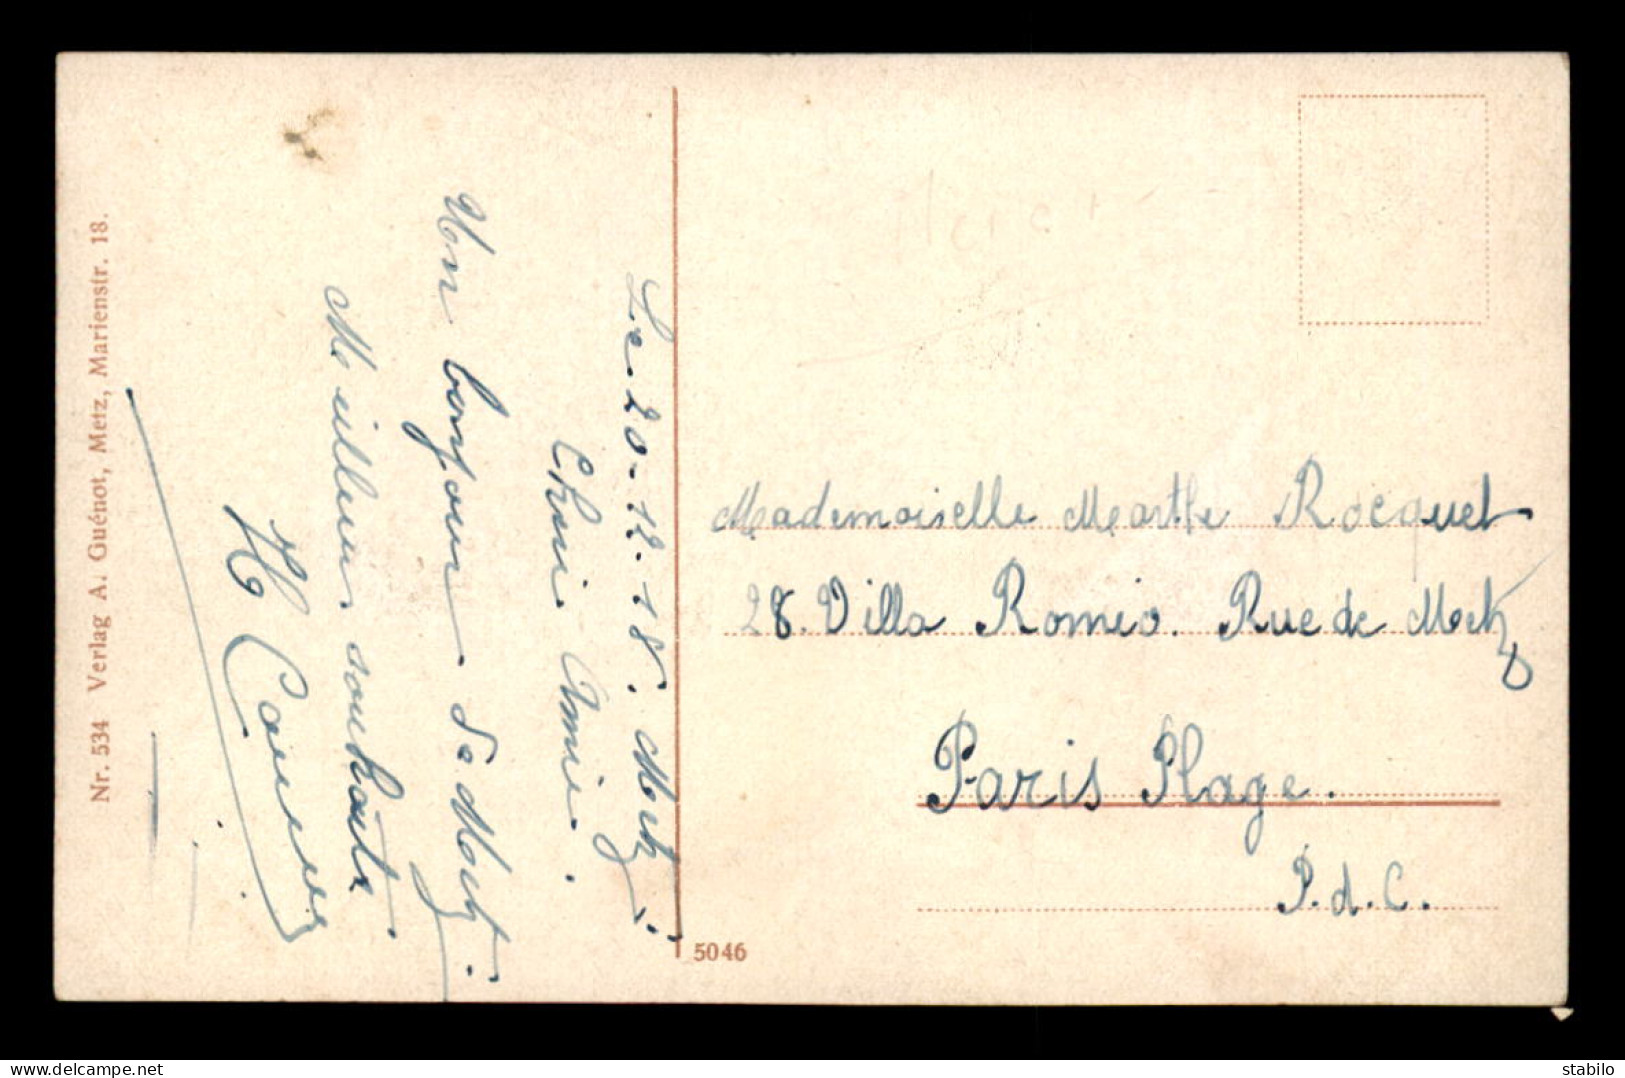 Le 20-12-18. Metz.
Chère Amie.
Un bonjour de Metz.
Meilleur souhaits.
Mademoiselle Marthe Rocquet
28. Villa Roméo. Rue de Metz
Paris Plage.
P.d.C.
5046
Nr. 534 Verlag A. Guénot, Metz, Marienstr. 18.
delcampe.net
stabilo